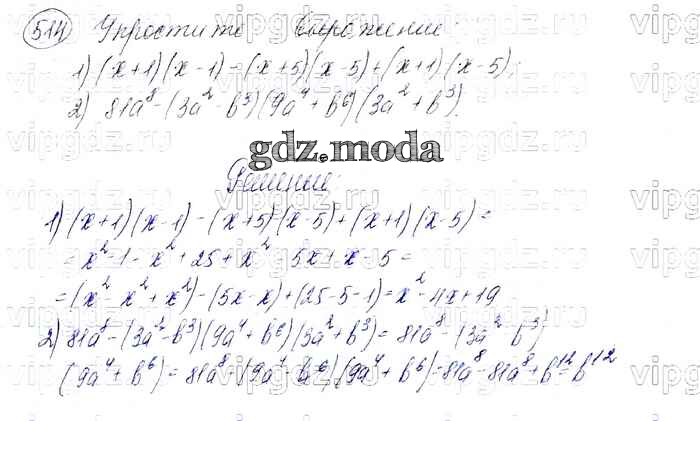 514 Упростите выражение:
1) (x+1)(x-1)-(x+5)(x-5)+(x+1)(x-5);
2) 81a⁸-(3a²-b³)(9a⁴+b⁶)(3a²+b³).
gdz.moda
Решение:
1) (x+1)(x-1)-(x+5)(x-5)+(x+1)(x-5)=
=x²-1-x²+25+x²-5x+x-5=
=(x²-x²+x²)-(5x-x)+(25-5-1)=x²-4x+19
2) 81a⁸-(3a²-b³)(9a⁴+b⁶)(3a²+b³)=81a⁸-(3a²-b³)
(9a⁴+b⁶)=81a⁸-(9a⁴-b⁶)(9a⁴+b⁶)=81a⁸-81a⁸+b¹²=b¹²